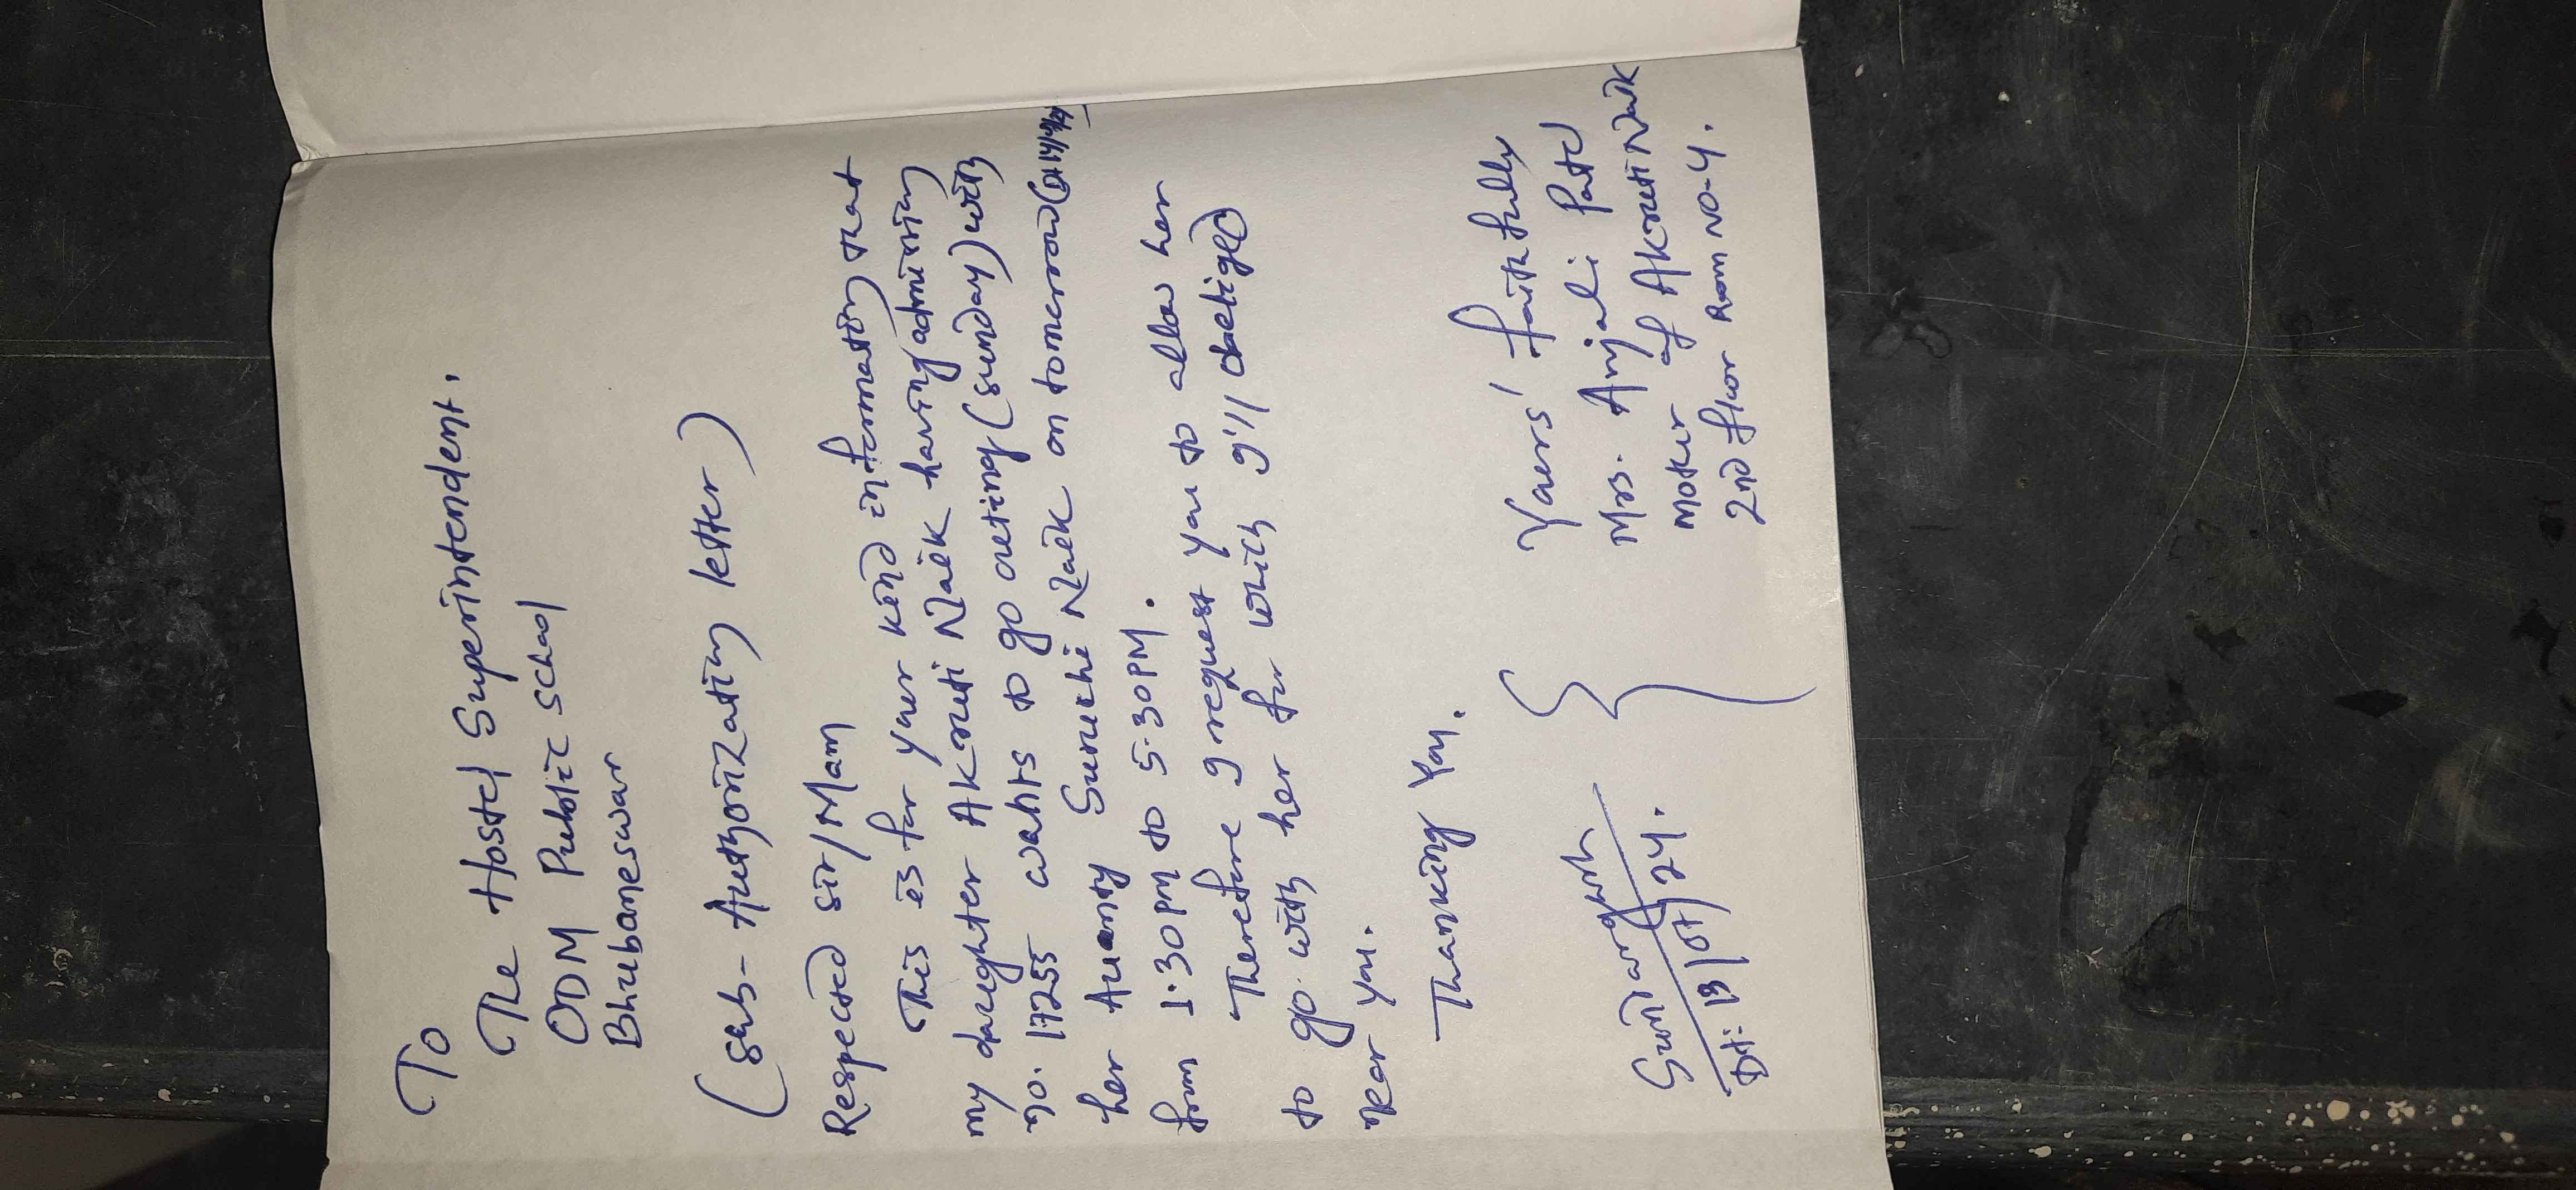 To
The Hostel Superintendent.
ODM Public School
Bhubaneswar
(Sub- Authorization letter)
Respected Sir/Mam
This is for your kind information that
my daughter Akruti Naik having admission
no. 17255 wants to go outing (sunday) with
her Aunty Suruchi Naik on tomorrow
from 1.30PM to 5.30PM.
Therefore I request you to allow her
to go with her for which I'll obeliged
near you.
Thanking You.
Yours' faithfully
Mrs. Anjali Patel
Mother of Akruti Naik
2nd floor Room NO-4.
Sundargarh
Dt: 13/07/24.